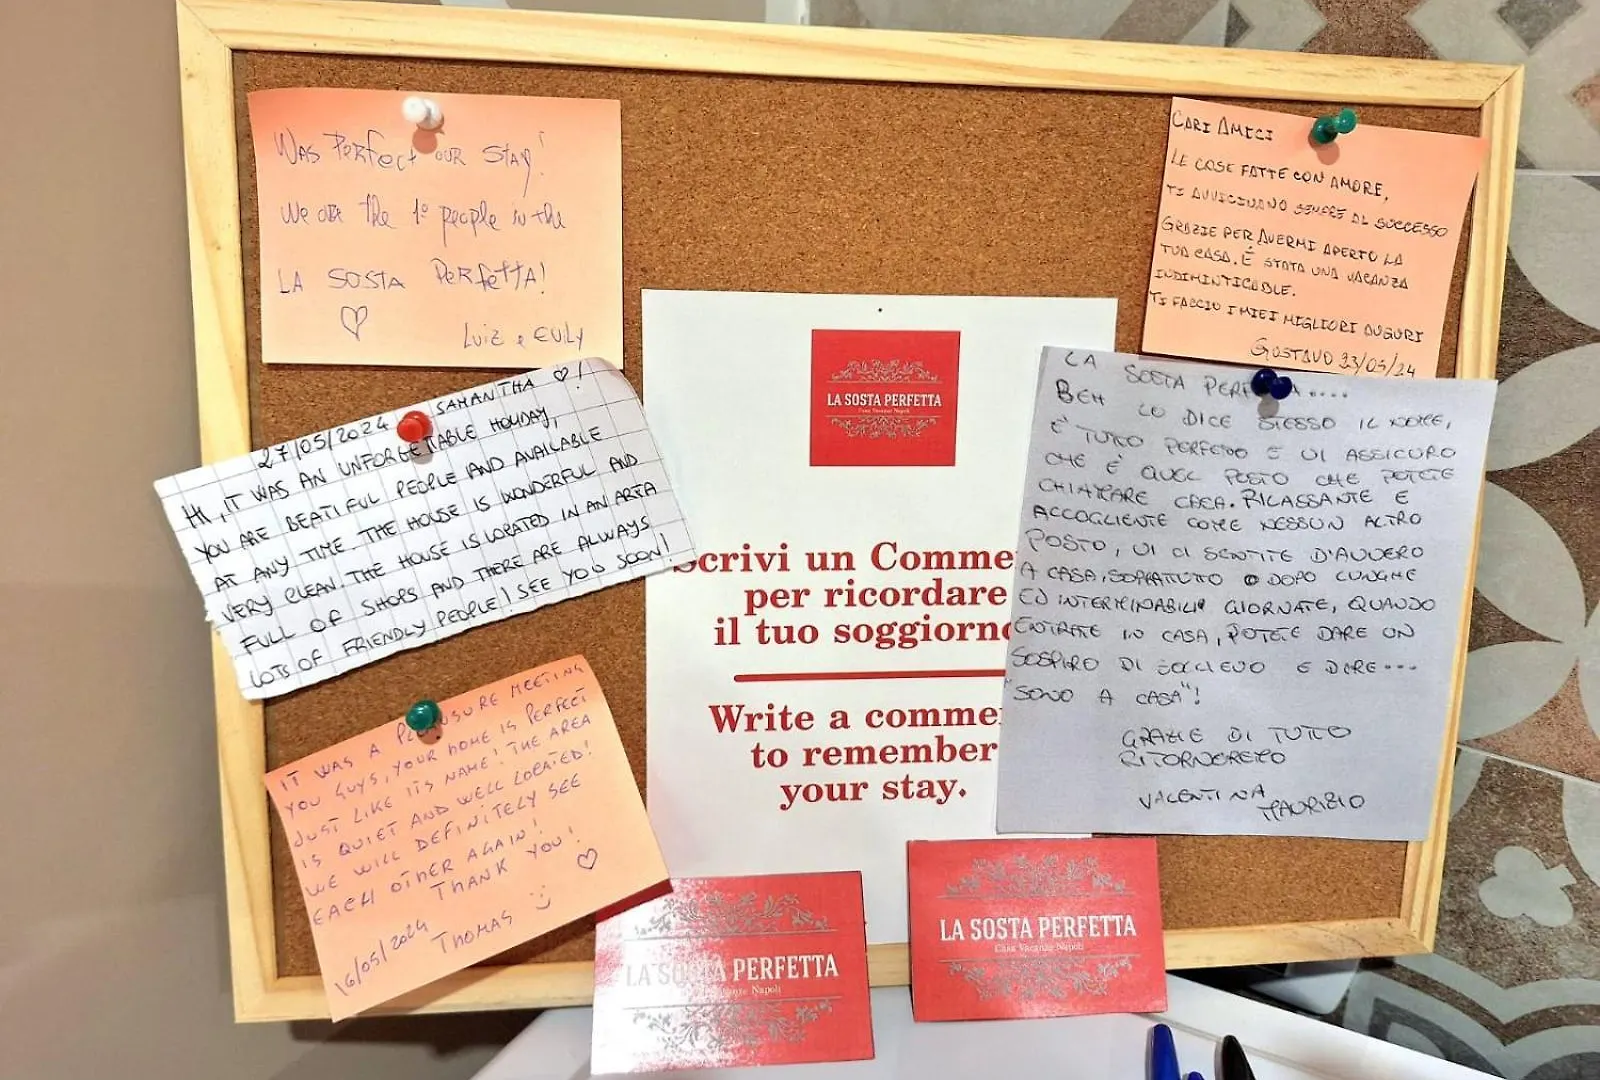 Was Perfect our stay!
We are the 1º people in the
LA SOSTA PERfETTA!
Luiz e Evily
27/05/2024 SAMANTHA
HI, IT WAS AN UNFORGETTABLE HOLIDAY,
YOU ARE BEATIFUL PEOPLE AND AVAILABLE
AT ANY TIME. THE HOUSE IS WONDERFUL AND
VERY CLEAN. THE HOUSE IS LOCATED IN AN AREA
FULL OF SHOPS AND THERE ARE ALWAYS
LOTS OF FRIENDLY PEOPLE! SEE YOU SOON!
IT WAS A PLEASURE MEETING
YOU GUYS, YOUR HOME IS PERFECT
JUST LIKE ITS NAME! THE AREA
IS QUIET AND WELL LOCATED!
WE WILL DEFINITELY SEE
EACH OTHER AGAIN!
THANK YOU!
16/05/2024 THOMAS :)
LA SOSTA PERFETTA
Casa Vacanze Napoli
Scrivi un Comme
per ricordare
il tuo soggiorno
Write a comme
to remember
your stay.
CARI AMICI
LE COSE FATTE CON AMORE,
TI AVVICINANO SEMPRE AL SUCCESSO
GRAZIE PER AVERMI APERTO LA
TUA CASA. È STATA UNA VACANZA
INDIMINTICABLE.
TI FACCIO I MIEI MIGLIORI AUGURI
GUSTAVO 23/05/24
LA SOSTA PERF A....
BEH LO DICE STESSO IL NOME,
E' TUTTO PERFETTO E VI ASSICURO
CHE È QUEL POSTO CHE POTETE
CHIAMARE CASA. RILASSANTE E
ACCOGLIENTE COME NESSUN ALTRO
POSTO, VI CI SENTITE D'AVVERO
A CASA, SOPRATTUTTO DOPO LUNGHE
ED INTERMINABILI GIORNATE, QUANDO
ENTRATE IN CASA, POTETE DARE UN
SOSPIRO DI SOLLIEVO E DIRE...
"SONO A CASA"!
GRAZIE DI TUTTO
RITORNEREMO
VALENTINA
MAURIZIO
LA SOSTA PERFETTA
Casa Vacanze Napoli
LA SOSTA PERFETTA
Casa Vacanze Napoli